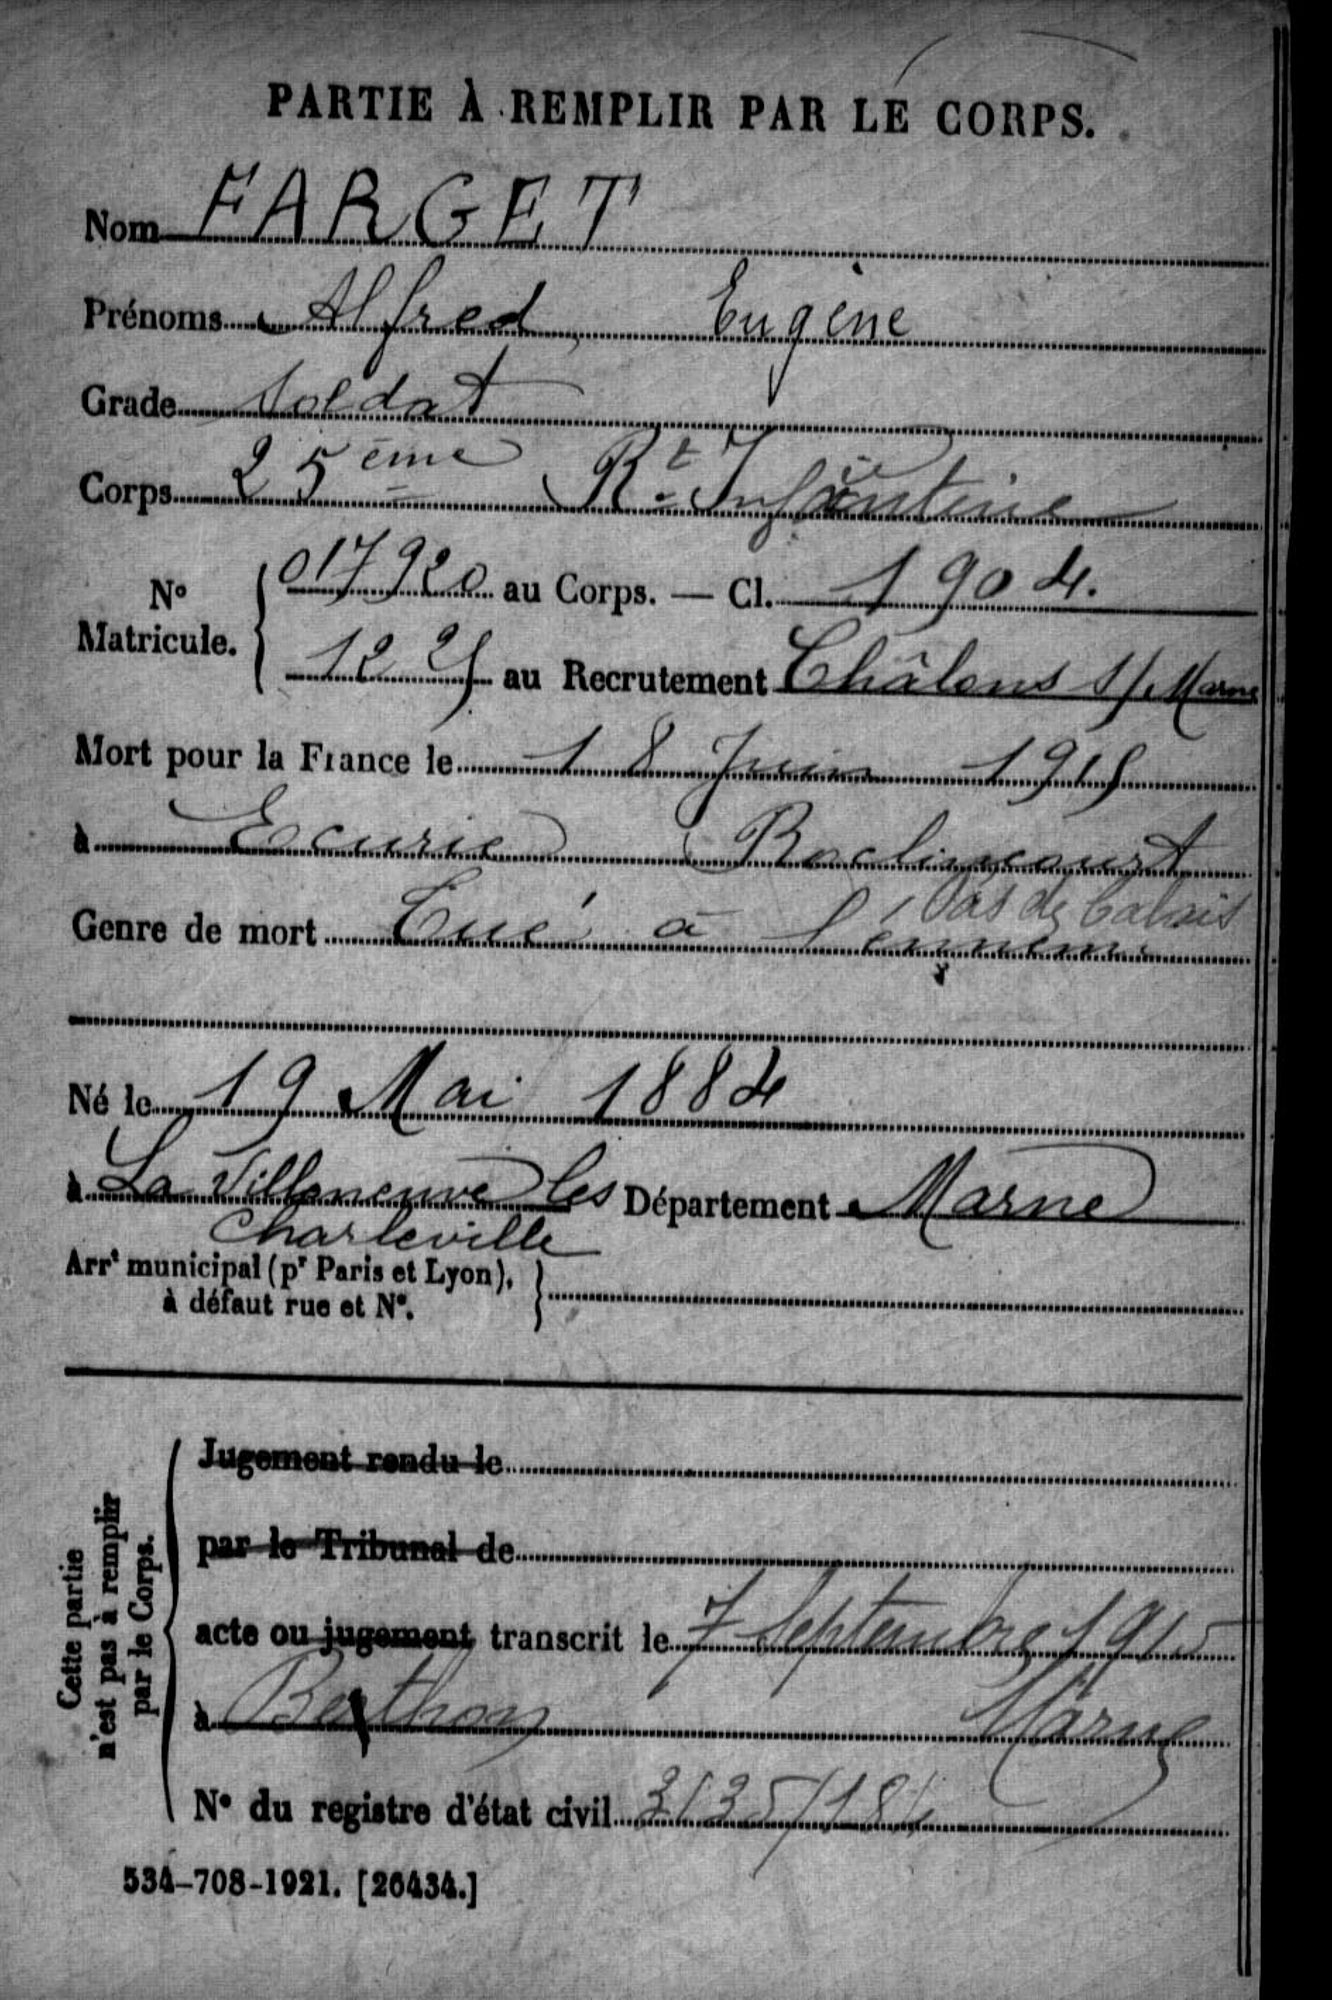 PARTIE À REMPLIR PAR LE CORPS.
Nom FARGET
Prénoms Alfred Eugène
Grade Soldat
Corps 25ème Rt Infanterie
No Matricule. 017920 au Corps. — Cl. 1904.
1225 au Recrutement Châlons s/Marne
Mort pour la France le 18 Juin 1915
à Ecurie Roclincourt
Pas de Calais
Genre de mort Tué à l'ennemi
Né le 19 Mai 1884
à La Villeneuve les Charleville Département Marne
Arrt municipal (pr Paris et Lyon),
à défaut rue et No.
Cette partie
n'est pas à remplir
par le Corps.
Jugement rendu le
par le Tribunal de
acte ou jugement transcrit le 7 Septembre 1915
à Marne
No du registre d'état civil
534-708-1921. [26434.]